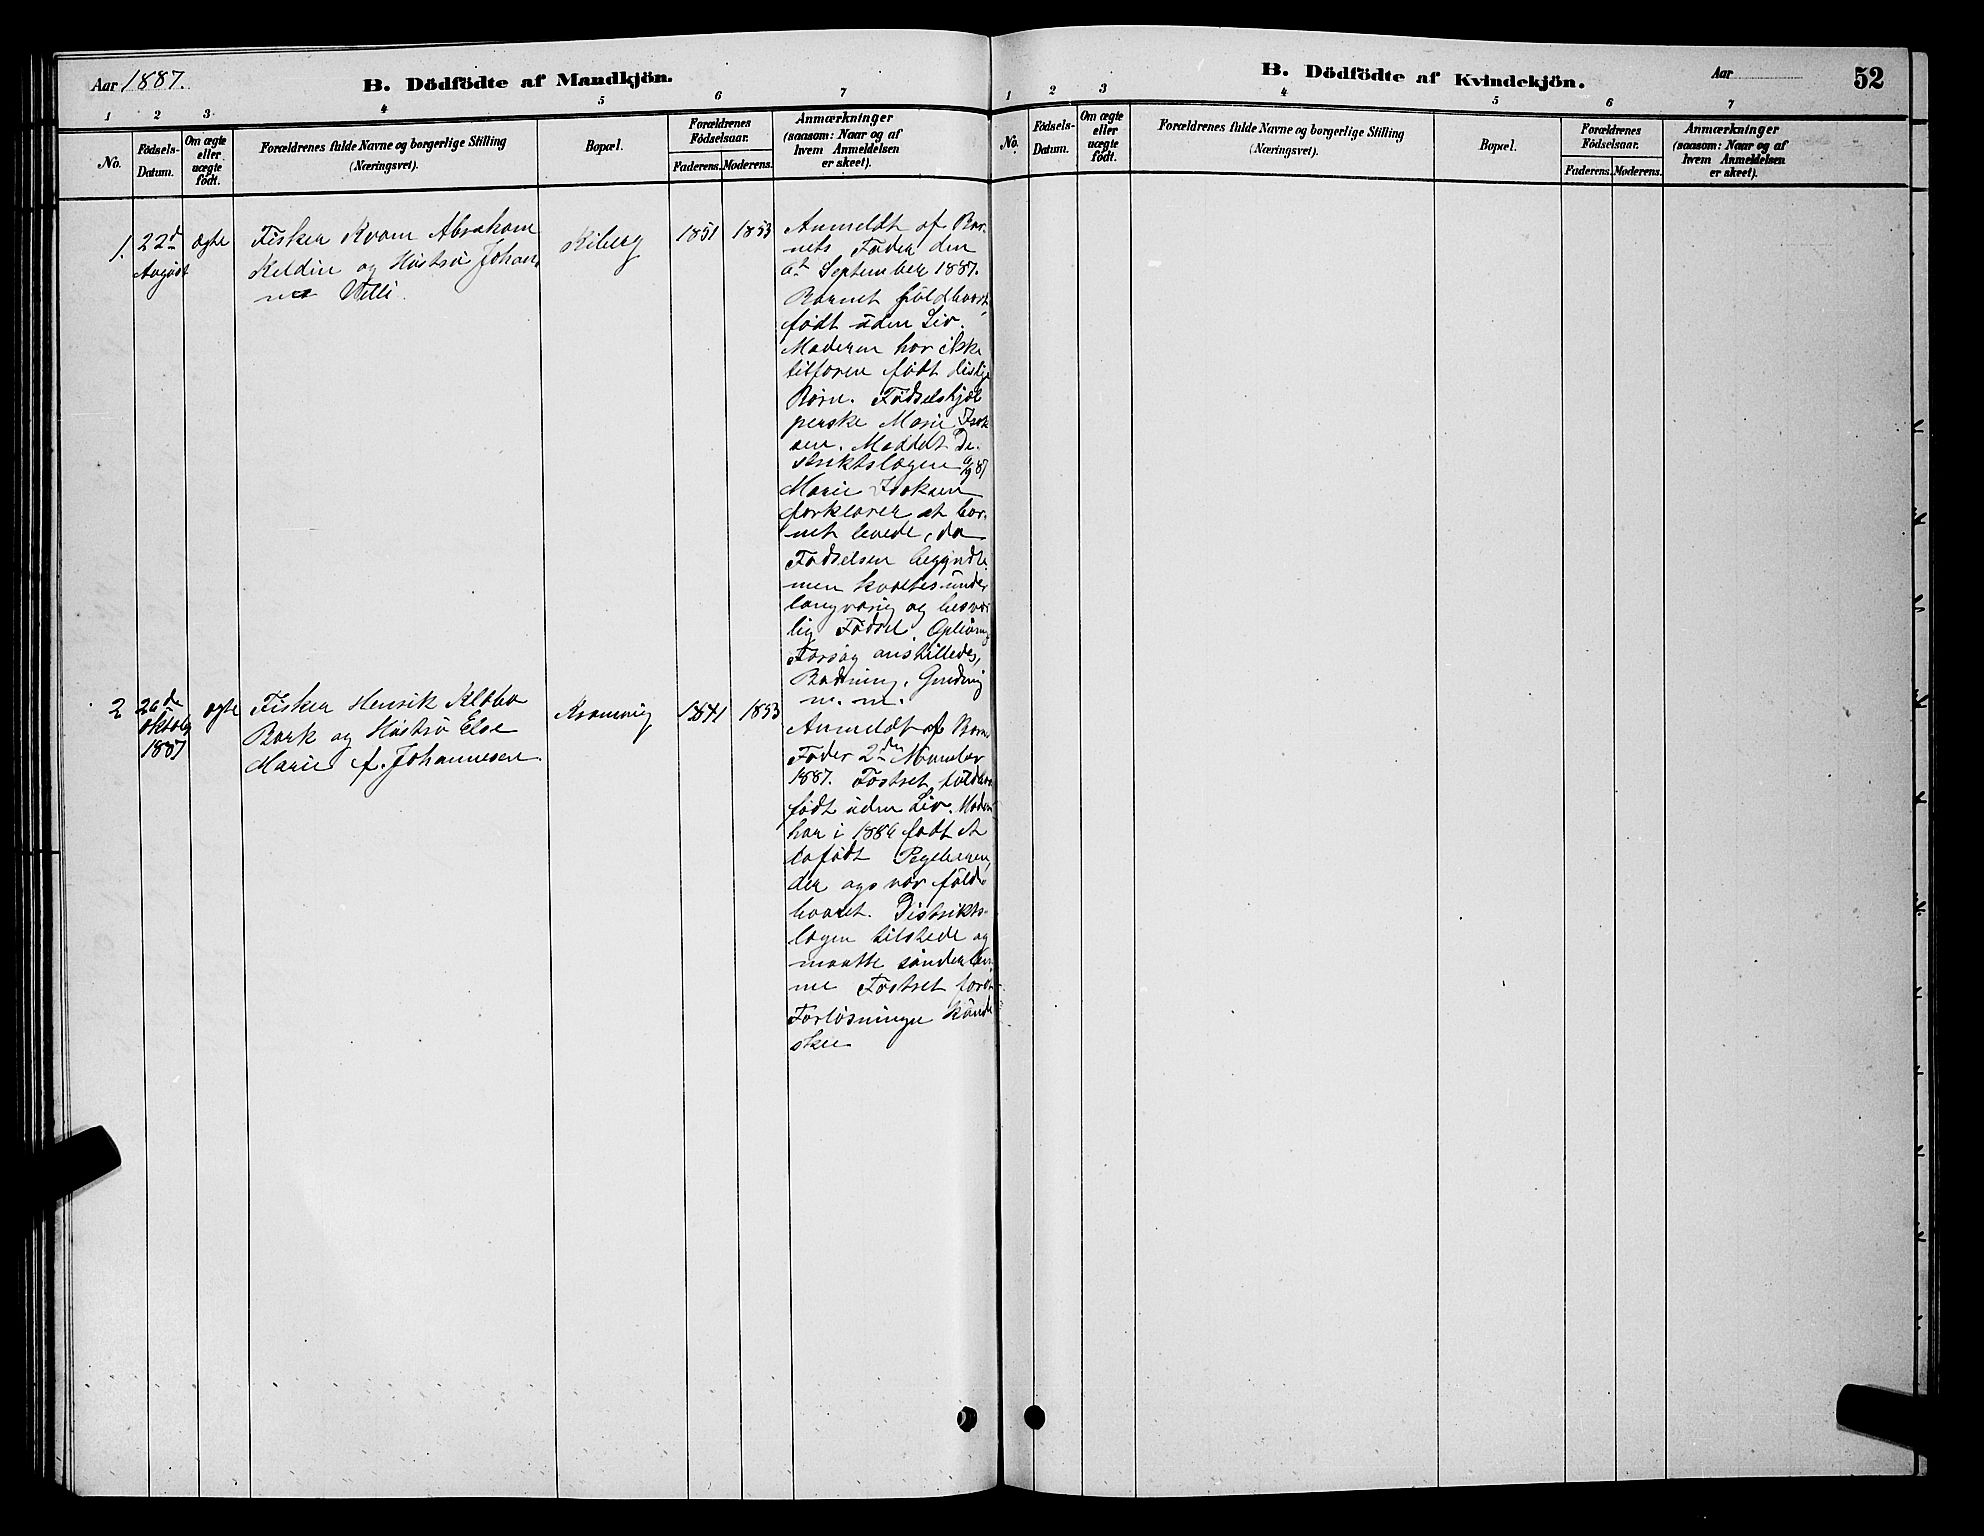 Aar 1887.
B. Dödfödte af Mandkjön.
1 2 3 4 5 6 7
No.
Födsels-
Datum.
Om ægte
eller
uægte
födt.
Forældrenes fulde Navne og borgerlige Stilling
(Næringsvei).
Bopæl.
Forældrenes
Födselsaar.
Faderens. Moderens.
Anmærkninger
(saasom: Naar og af
hvem Anmeldelsen
er skeet).
1.
22d
August
ægte
Fisker Kvam Abraham
Keldin og Hustru Johan
na Ulli.
Kiberg
1851
1853
Anmeldt af Bar-
nets Fader den
September 1887.
Barnet fuldbaart,
født uden Liv.
Moderen har ikke
tilforn født
Børn. Fødselshjæl
perske Marie Isak
sen. Meddelt Di-
striktslægen
Marie Isaksen
forklarer at bar-
net levede, da
Fødselsen begyndte
men kvaltes under
langvarig og besvær
lig Fødsel. Oplivnings
Forsøg anstilledes,
Badning, Gnidning
m. m.
2
26de
oktober
1887
ægte
Fisker Henrik
Bark og Hustru Else
Marie f. Johannesen.
Kramvig
1841
1853
Anmeldt af Barnets
Fader 2den November
1887. Fostret fuldbaaret
født uden Liv. Moderen
har i 1886 født et
der ogs var fuld-
baaret. Distrikts-
lægen tilstede og
maatte sønderlem-
me Fostret førend
Forløsningen kunde
skee
B. Dödfödte af Kvindekjön.
Aar
52
1 2 3 4 5 6 7
No.
Födsels-
Datum.
Om ægte
eller
uægte
födt.
Forældrenes fulde Navne og borgerlige Stilling
(Næringsvei).
Bopæl.
Forældrenes
Födselsaar.
Faderens. Moderens.
Anmærkninger
(saasom: Naar og af
hvem Anmeldelsen
er skeet).